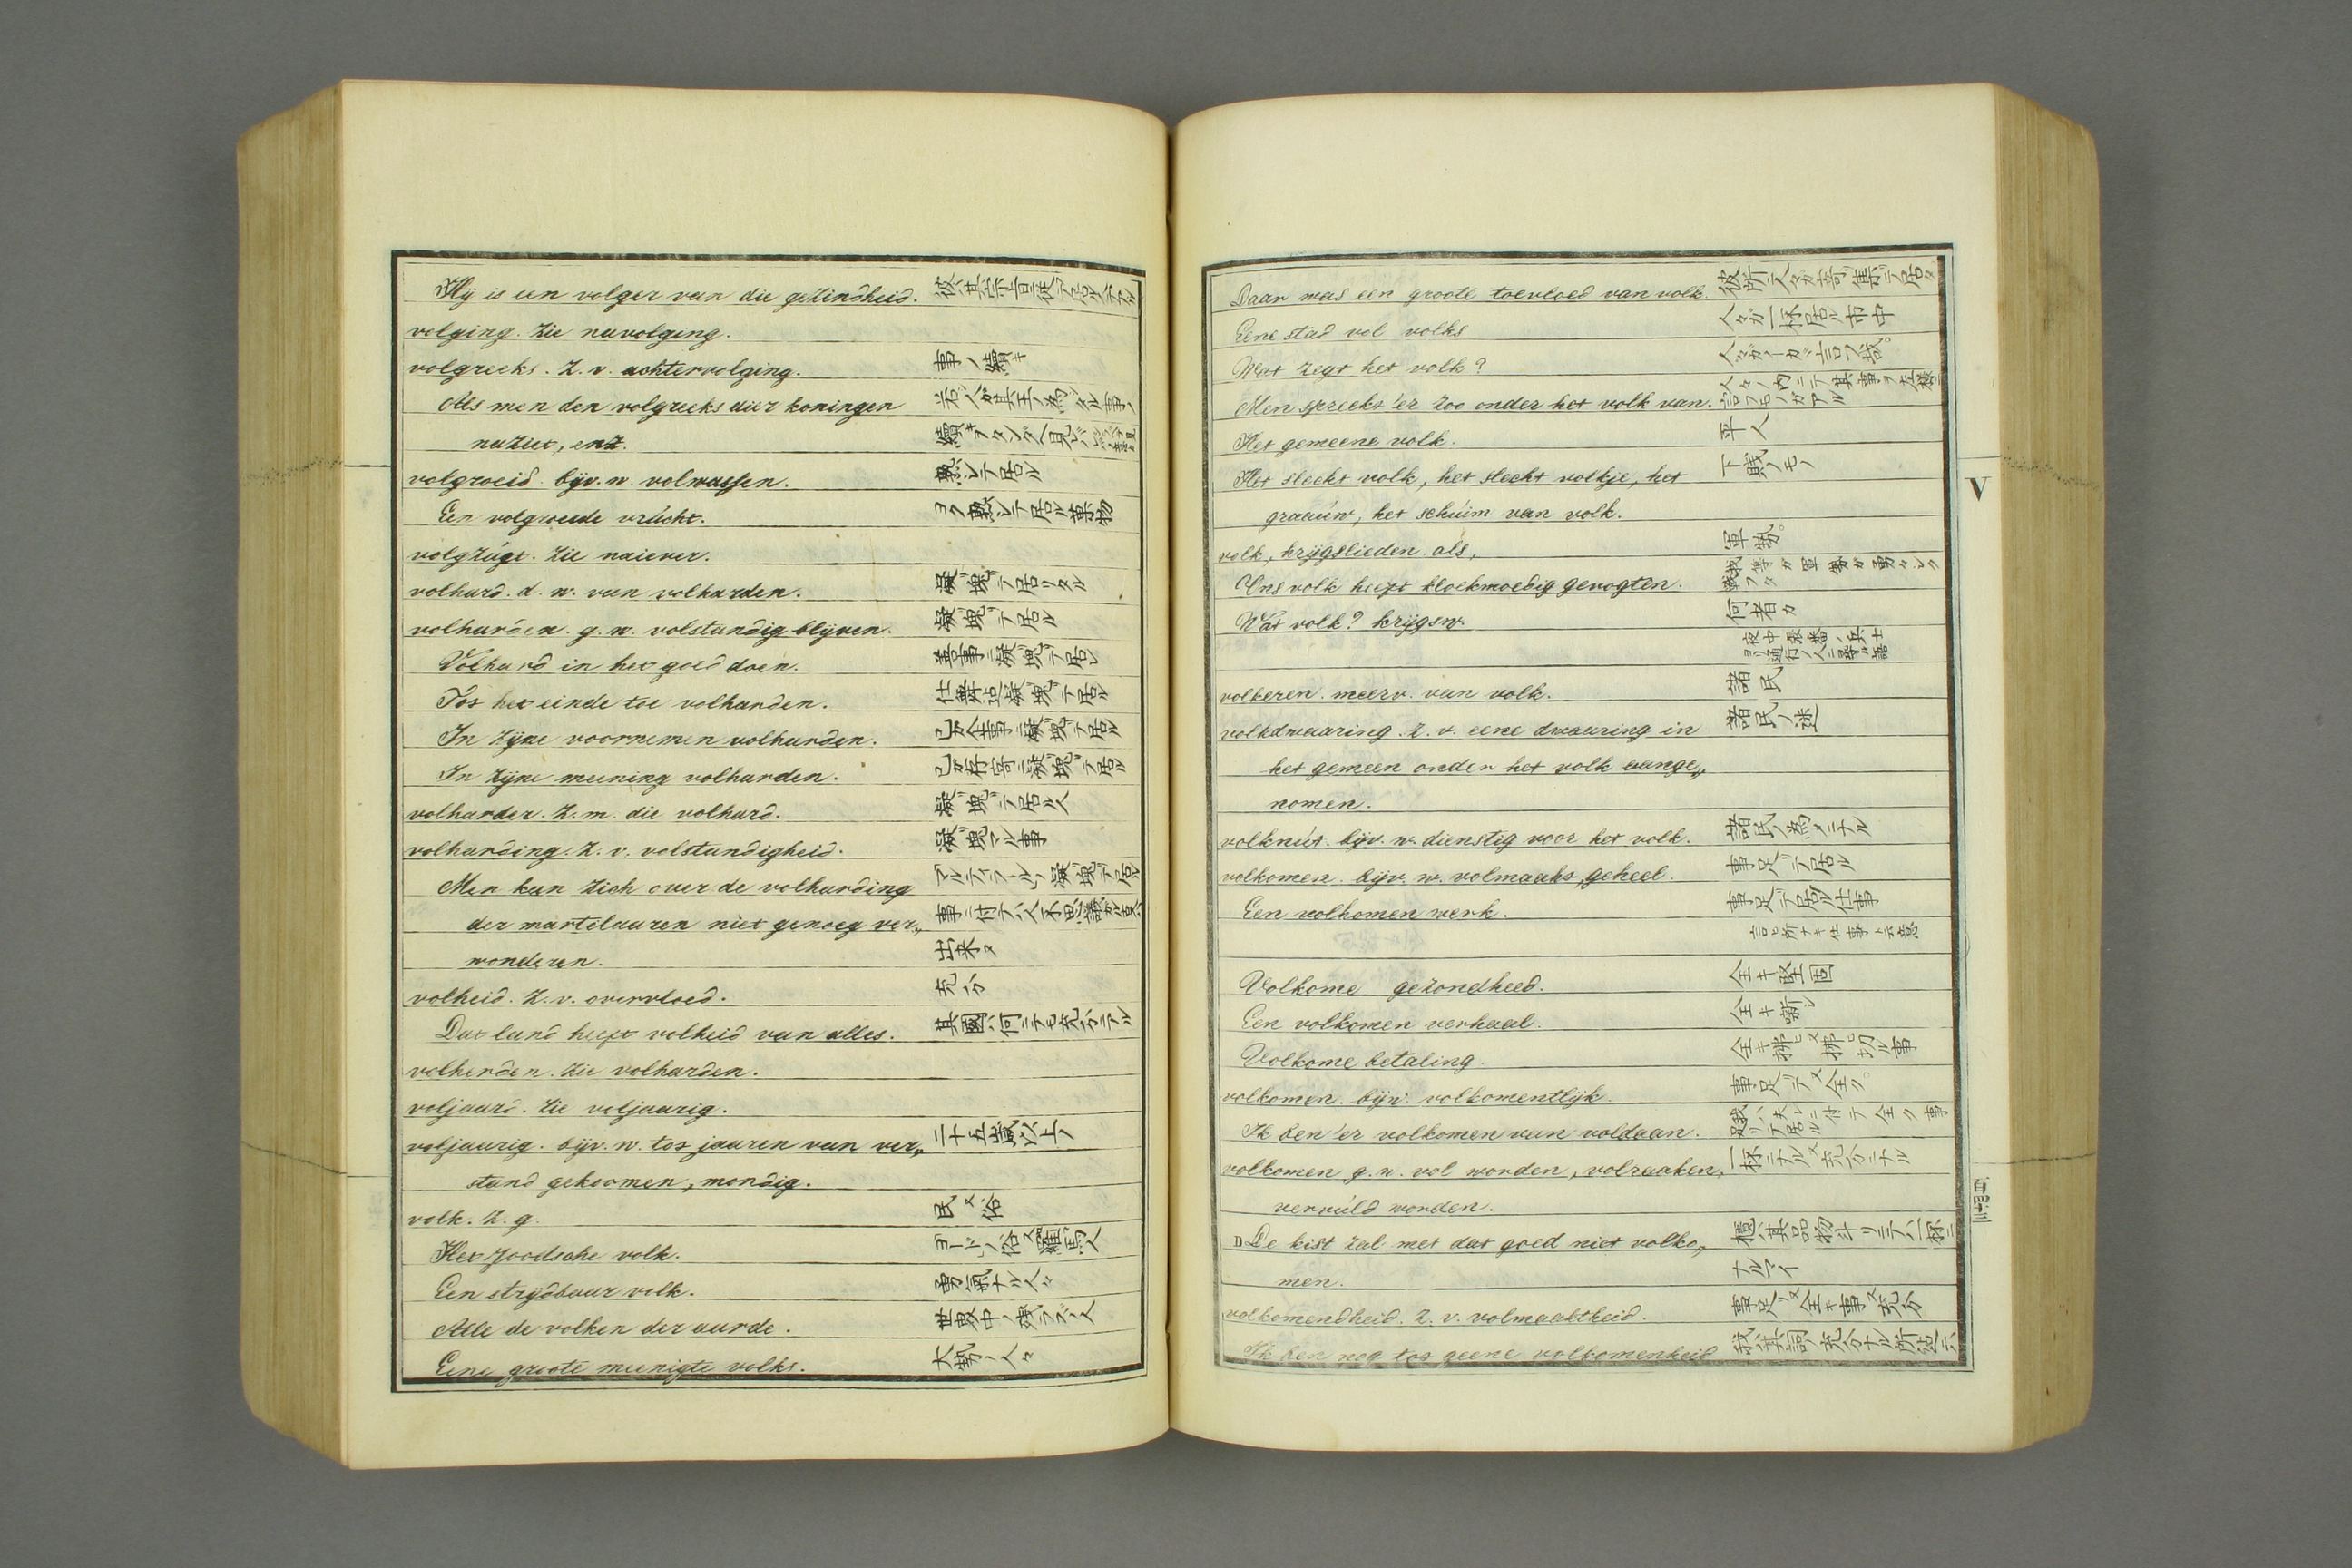 Hij is een volger van die gezindheid. 彼ハ其宗旨ニ従テ居ル
volging. Zie navolging.
volgreeks. Z. v. achtervolging. 事ノ續キ
Als men den volgreeks dier koningen
naziet, enz.
volgroeid. bijv. w. volwassen. 熟シテ居ル
Een volgroeide vrúcht. ヨク熟シテ居ル菓物
volgzúgt. Zie naiever.
volhard. d. w. van volharden. 凝塊テ居リタル
volharden. g. w. volstandig blijven. 凝塊テ居ル
Volhard in het goed doen. 善事ニ凝塊テ居レ
Tot het einde toe volharden. 仕舞迄凝塊テ居ル
In zijne voornemen volharden. 己ガ企事ニ凝塊テ居ル
In zijne meening volharden. 己ガ存寄ニ凝塊テ居ル
volharder. Z. m. die volhard. 凝塊テ居ル人
volharding. Z. v. volstandigheid. 凝塊マル事
Men kan zich over de volharding
der martelaaren niet genoeg ver„
wonderen. 出来ヌ
volheid. Z. v. overvloed. 充分
Dat land heeft volheid van alles. 其國ハ何ニテモ充分ニアル
volherden. Zie volharden.
voljaard. Zie voljaarig.
voljaarig. bijv. w. tot jaaren van ver„ 二十五歳以上ノ
stand gekoomen, mondig.
volk. Z. g. 民 又 俗
Het Joodsche volk.
Een strijdbaar volk. 勇氣ナル人々
Alle de volken der aarde. 世界中ノ残ラズノ人
Eene groote meenigte volks. 大勢ノ人々
Daar was een groote toevloed van volk. 彼所ニ人々ガ寄集テ居タ
Eene stad vol volks 人々ガ一杯居ル市中
Wat zegt het volk?
Men spreekt 'er zoo onder het volk van. 人々ノ内ニテ其事ヲ左様ニ言フモノガアル
Het gemeene volk. 平人
Het slecht volk, het slecht volkje, het 下賎ノモノ
graaúw, het schúim van volk.
volk, krijgslieden. als, 軍勢。
Ons volk heeft kloekmoedig gevogten. 我等ガ軍勢ガ勇々シク戦フタ
Wat volk? krijgsw. 何者カ
夜中張番ノ兵士ヨリ通行ノ人ニ尋ル語
volkeren. meerv. van volk. 諸民
volkdwaaring. Z. v. eene dwaaring in 諸民ノ迷
het gemeen onder het volk aange„
nomen.
volknút. bijv. w. dienstig voor het volk. 諸民ノ為メニナル
volkomen. bijv. w. volmaakt, geheel. 事足テ居ル
Een volkomen werk. 事足テ居ル仕事
言ヒ所ナキ仕事ト云意
Volkome gezondheed. 全キ堅固
Een volkomen verhaal. 全キ噺シ
Volkome betaling. 全キ拂ヒ 又 拂ヒ切ル事
volkomen. bijw. volkomentlijk. 事足リテ 又 全ク。
Ik ben 'er volkomen van voldaan.
volkomen. g. w. vol worden, volraaken, 一杯ニナル 又 充分ニナル
vervúld worden.
De kist zal met dat goed niet volko„ 櫃ハ其品物斗リニテハ一杯ニ
men. ナルマイ
volkomendheid. Z. v. volmaaktheid. 事足リ 又 全キ事 又 充分
Ik ben nog tot geene volkomenheid
V